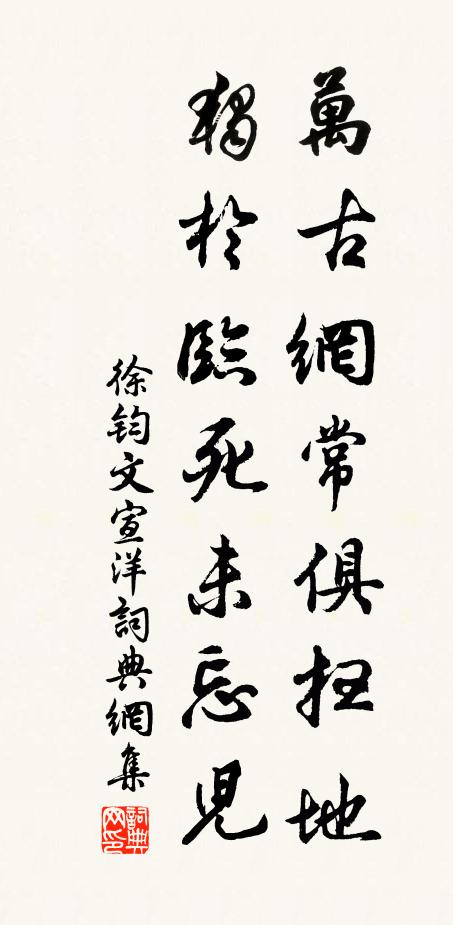 萬古網常俱抂地
獨於臨死未忘児
徐鈞文宣洋詞典網集
詞典
网印